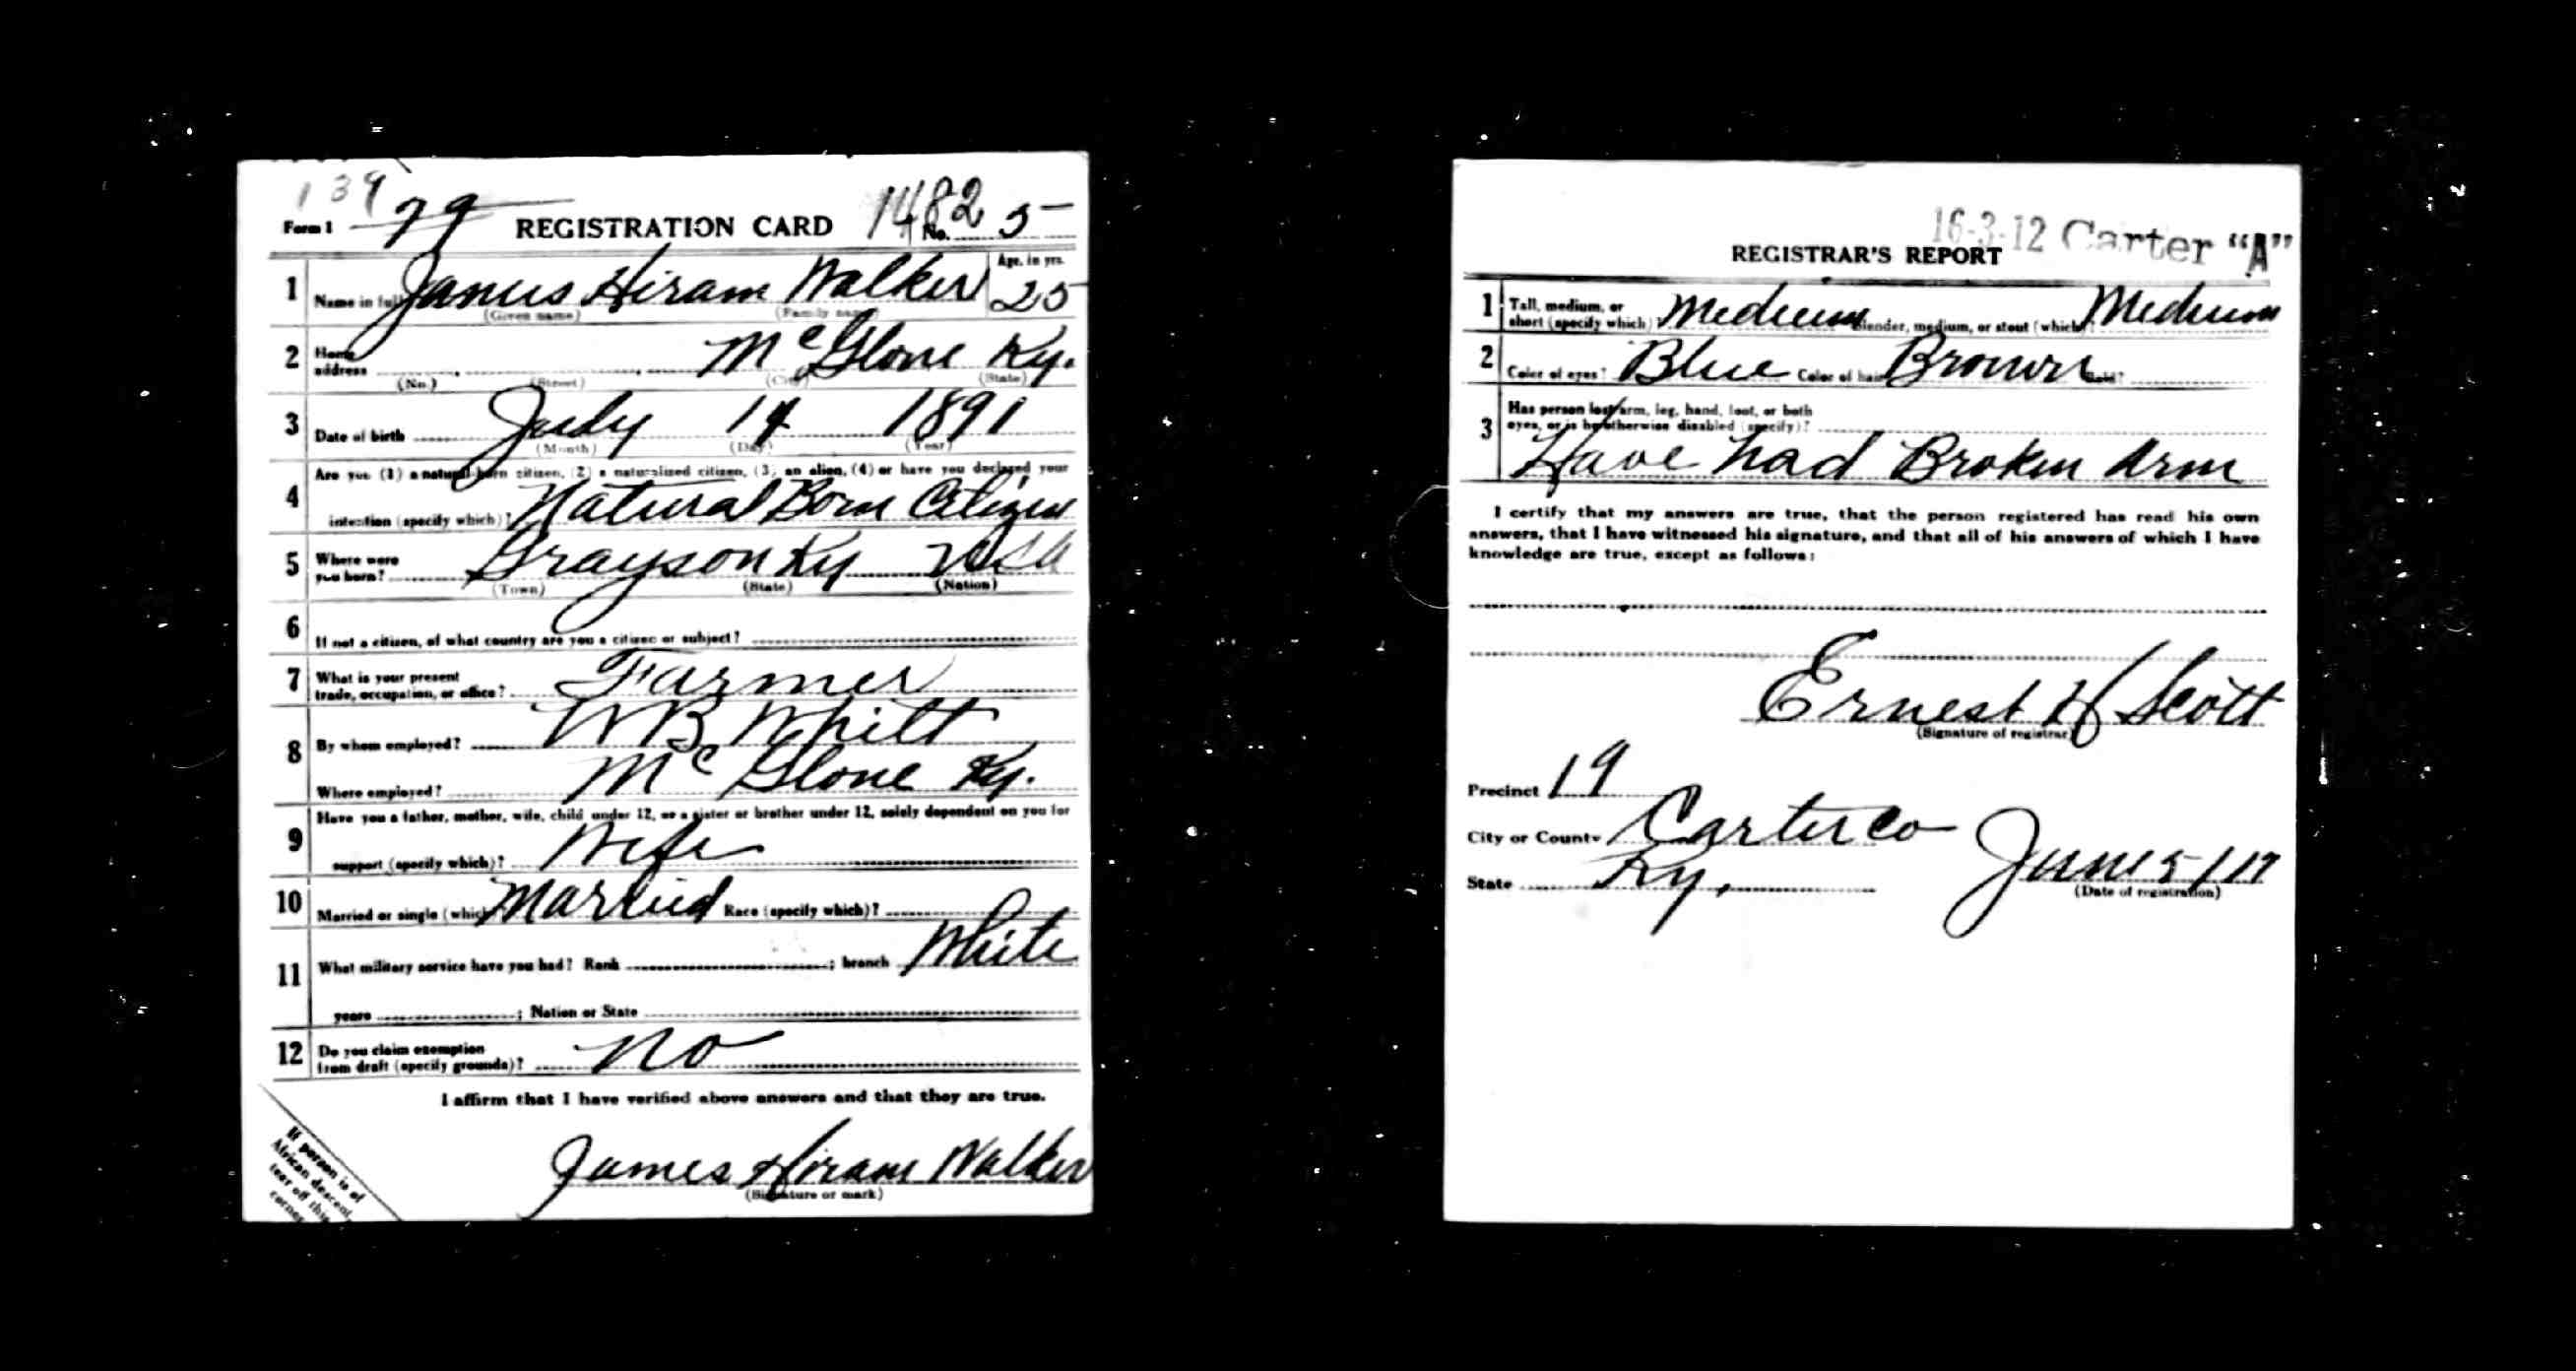 139
Form 1 79 REGISTRATION CARD 1482 No. 5
1 Name in full James Hiram Walker Age, in yrs. 25
(Given name) (Family name)
2 Home address McGlone Ky.
(No.) (Street) (City) (State)
3 Date of birth July 14 1891
(Month) (Day) (Year)
4 Are you (1) a natural-born citizen, (2) a naturalized citizen, (3) an alien, (4) or have you declared your
intention (specify which)? Natural Born Citizen
5 Where were you born? Grayson Ky USA
(Town) (State) (Nation)
6 If not a citizen, of what country are you a citizen or subject?
7 What is your present trade, occupation, or office? Farmer
8 By whom employed? WB Whitt
Where employed? McGlone Ky.
9 Have you a father, mother, wife, child under 12, or a sister or brother under 12, solely dependent on you for
support (specify which)? Wife
10 Married or single (which)? Married Race (specify which)?
11 What military service have you had? Rank ; branch White
years ; Nation or State
12 Do you claim exemption from draft (specify grounds)? no
I affirm that I have verified above answers and that they are true.
James Hiram Walker
(Signature or mark)
If person is of
African descent,
tear off this
corner
16-3-12 Carter "A"
REGISTRAR'S REPORT
1 Tall, medium, or short (specify which)? Medium Slender, medium, or stout (which)? Medium
2 Color of eyes? Blue Color of hair? Brown Bald?
3 Has person lost arm, leg, hand, foot, or both
eyes, or is he otherwise disabled (specify)?
Have had Broken Arm
I certify that my answers are true, that the person registered has read his own
answers, that I have witnessed his signature, and that all of his answers of which I have
knowledge are true, except as follows:
Ernest H Scott
(Signature of registrar)
Precinct 19
City or County Carter Co
State Ky. June 5/17
(Date of registration)